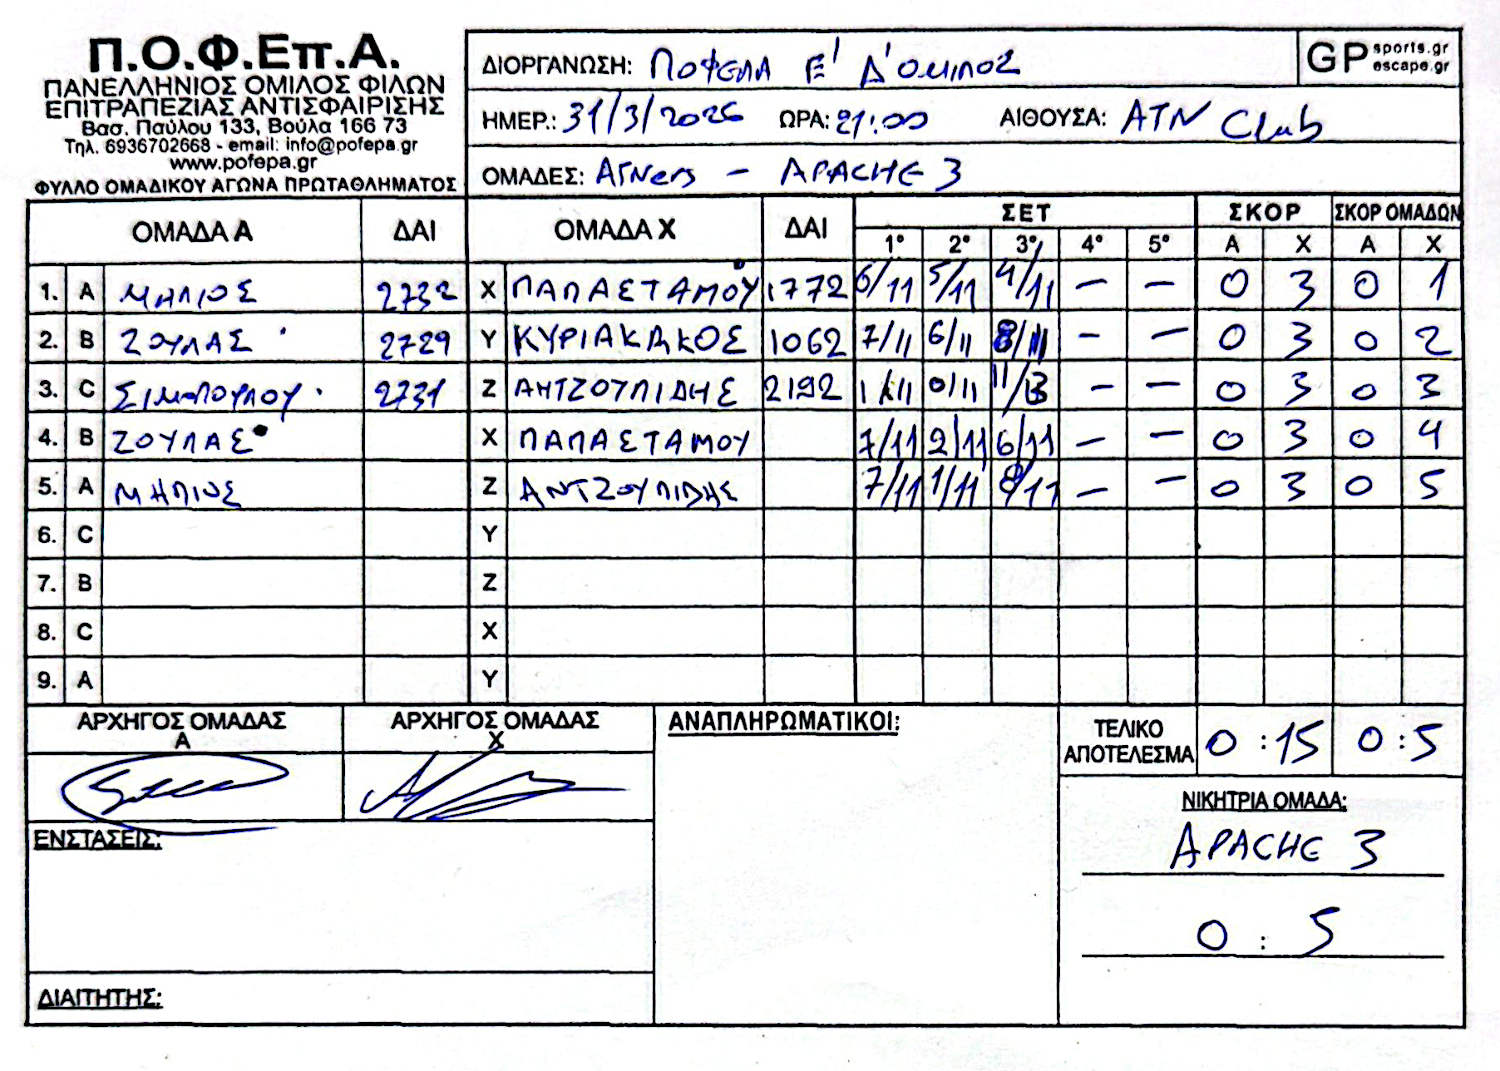 Π.Ο.Φ.Επ.Α.
ΠΑΝΕΛΛΗΝΙΟΣ ΟΜΙΛΟΣ ΦΙΛΩΝ
ΕΠΙΤΡΑΠΕΖΙΑΣ ΑΝΤΙΣΦΑΙΡΙΣΗΣ
Βασ. Παύλου 133, Βούλα 166 73
Τηλ. 6936702668 - email: info@pofepa.gr
www.pofepa.gr
ΦΥΛΛΟ ΟΜΑΔΙΚΟΥ ΑΓΩΝΑ ΠΡΩΤΑΘΛΗΜΑΤΟΣ
ΔΙΟΡΓΑΝΩΣΗ: ΠΟΦΕΠΑ Ε' Δ' ΟΜΙΛΟΣ
GP sports.gr escape.gr
ΗΜΕΡ.: 31/3/2026 ΩΡΑ: 21:00 ΑΙΘΟΥΣΑ: ATN Club
ΟΜΑΔΕΣ: ATNers - APACHE 3
ΟΜΑΔΑ Α ΔΑΙ ΟΜΑΔΑ Χ ΔΑΙ ΣΕΤ ΣΚΟΡ ΣΚΟΡ ΟΜΑΔΩΝ
1° 2° 3° 4° 5° Α Χ Α Χ
1. A ΜΗΛΙΟΣ 2732 X ΠΑΠΑΣΤΑΜΟΥ 1772 6/11 5/11 4/11 - - 0 3 0 1
2. B ΖΟΥΛΑΣ 2729 Y ΚΥΡΙΑΚΑΚΟΣ 1062 7/11 6/11 8/11 - - 0 3 0 2
3. C ΣΙΜΟΠΟΥΛΟΥ 2731 Z ΑΝΤΖΟΥΛΙΔΗΣ 2192 1/11 0/11 11/13 - - 0 3 0 3
4. B ΖΟΥΛΑΣ X ΠΑΠΑΣΤΑΜΟΥ 7/11 2/11 6/11 - - 0 3 0 4
5. A ΜΗΛΙΟΣ Z ΑΝΤΖΟΥΛΙΔΗΣ 7/11 1/11 8/11 - - 0 3 0 5
6. C Y
7. B Z
8. C X
9. A Y
ΑΡΧΗΓΟΣ ΟΜΑΔΑΣ Α
ΑΡΧΗΓΟΣ ΟΜΑΔΑΣ Χ
ΑΝΑΠΛΗΡΩΜΑΤΙΚΟΙ:
ΤΕΛΙΚΟ ΑΠΟΤΕΛΕΣΜΑ 0 : 15 0 : 5
ΝΙΚΗΤΡΙΑ ΟΜΑΔΑ:
APACHE 3
0 : 5
ΕΝΣΤΑΣΕΙΣ:
ΔΙΑΙΤΗΤΗΣ: